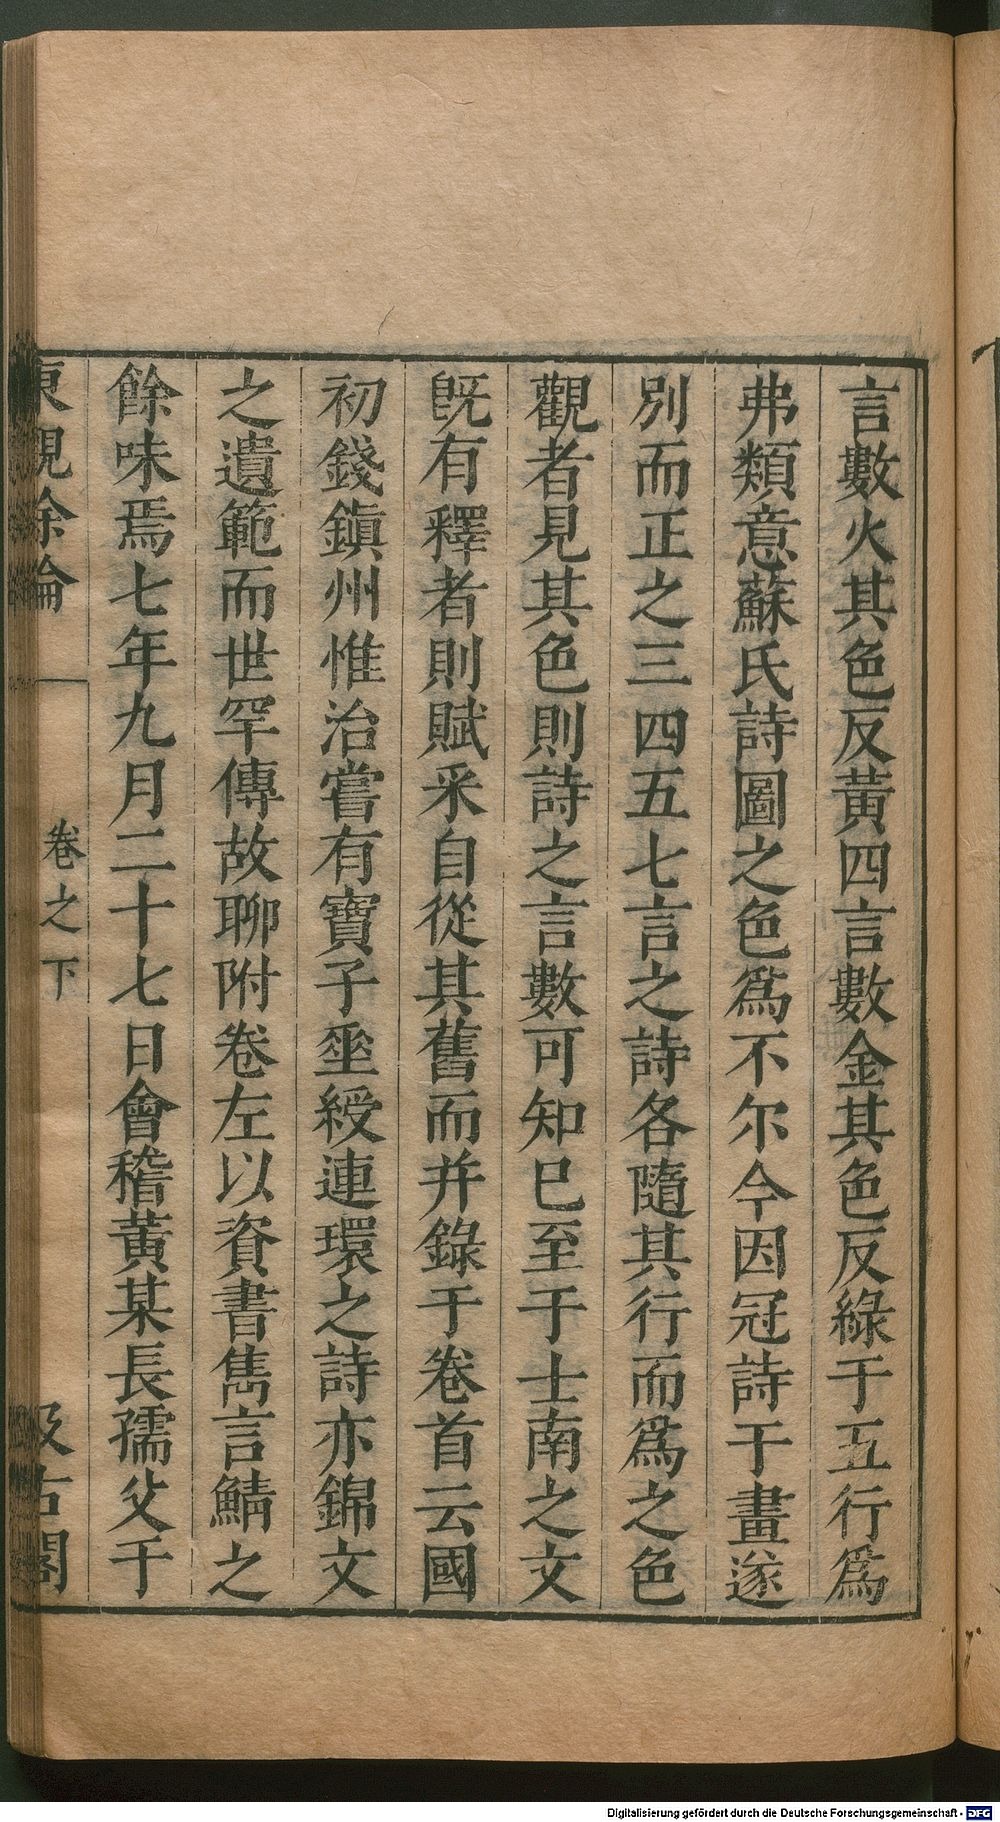 言數火其色反黃四言數金其色反綠于五行爲
弗類意蘇氏詩圖之色爲不尔今因冠詩于畫遂
別而正之三四五七言之詩各隨其行而爲之色
觀者見其色則詩之言數可知巳至于士南之文
旣有釋者則賦采自從其舊而并錄于卷首云國
初錢鎭州惟治嘗有寶子垂綬連環之詩亦錦文
之遺範而世罕傳故聊附卷左以資書雋言鯖之
餘味焉七年九月二十七日會稽黃某長孺父于
東觀餘論
卷之下
汲古閣
Digitalisierung gefördert durch die Deutsche Forschungsgemeinschaft - DFG